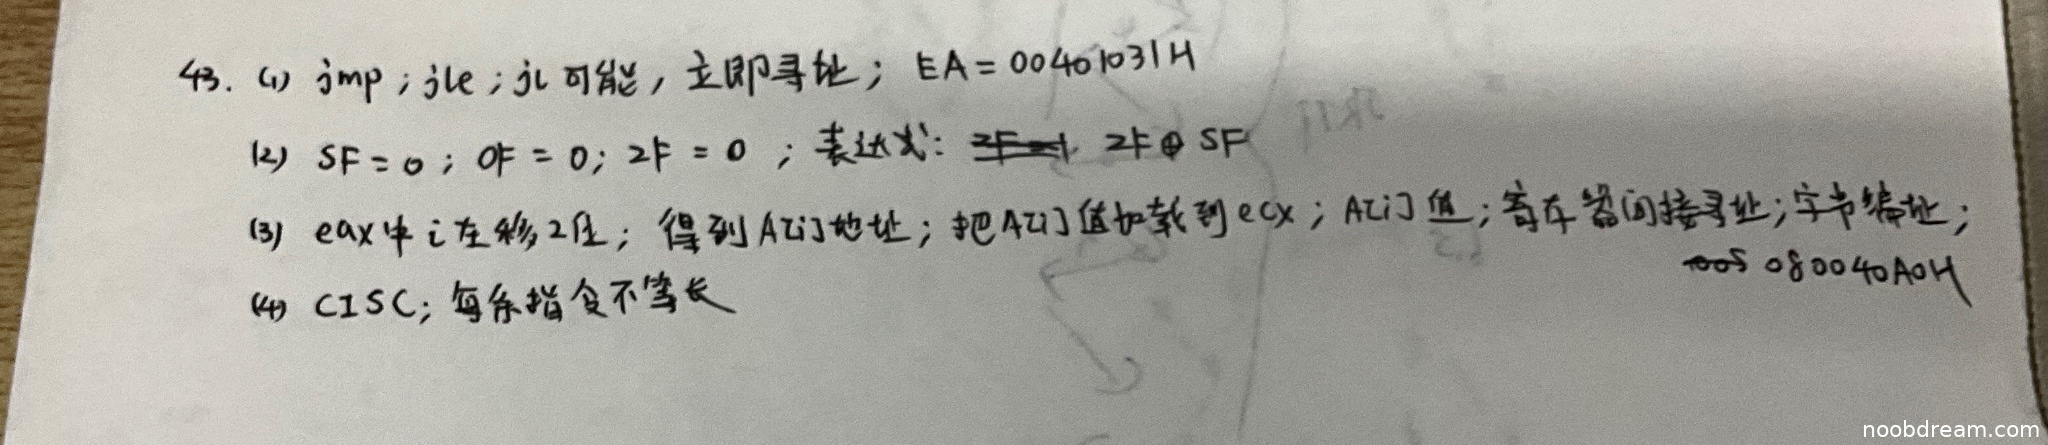 43. (1) jmp ; jle ; jl 可能, 立即寻址 ; EA = 00401031H
(2) SF = 0 ; OF = 0 ; ZF = 0 ; 表达式: ZF=1 ZF⊕SF
(3) eax中i左移2位 ; 得到A[i]地址 ; 把A[i]值加载到ecx ; A[i]值 ; 寄存器间接寻址 ; 字节编址 ;
005 080040A0H
(4) CISC ; 每条指令不等长
noobdream.com